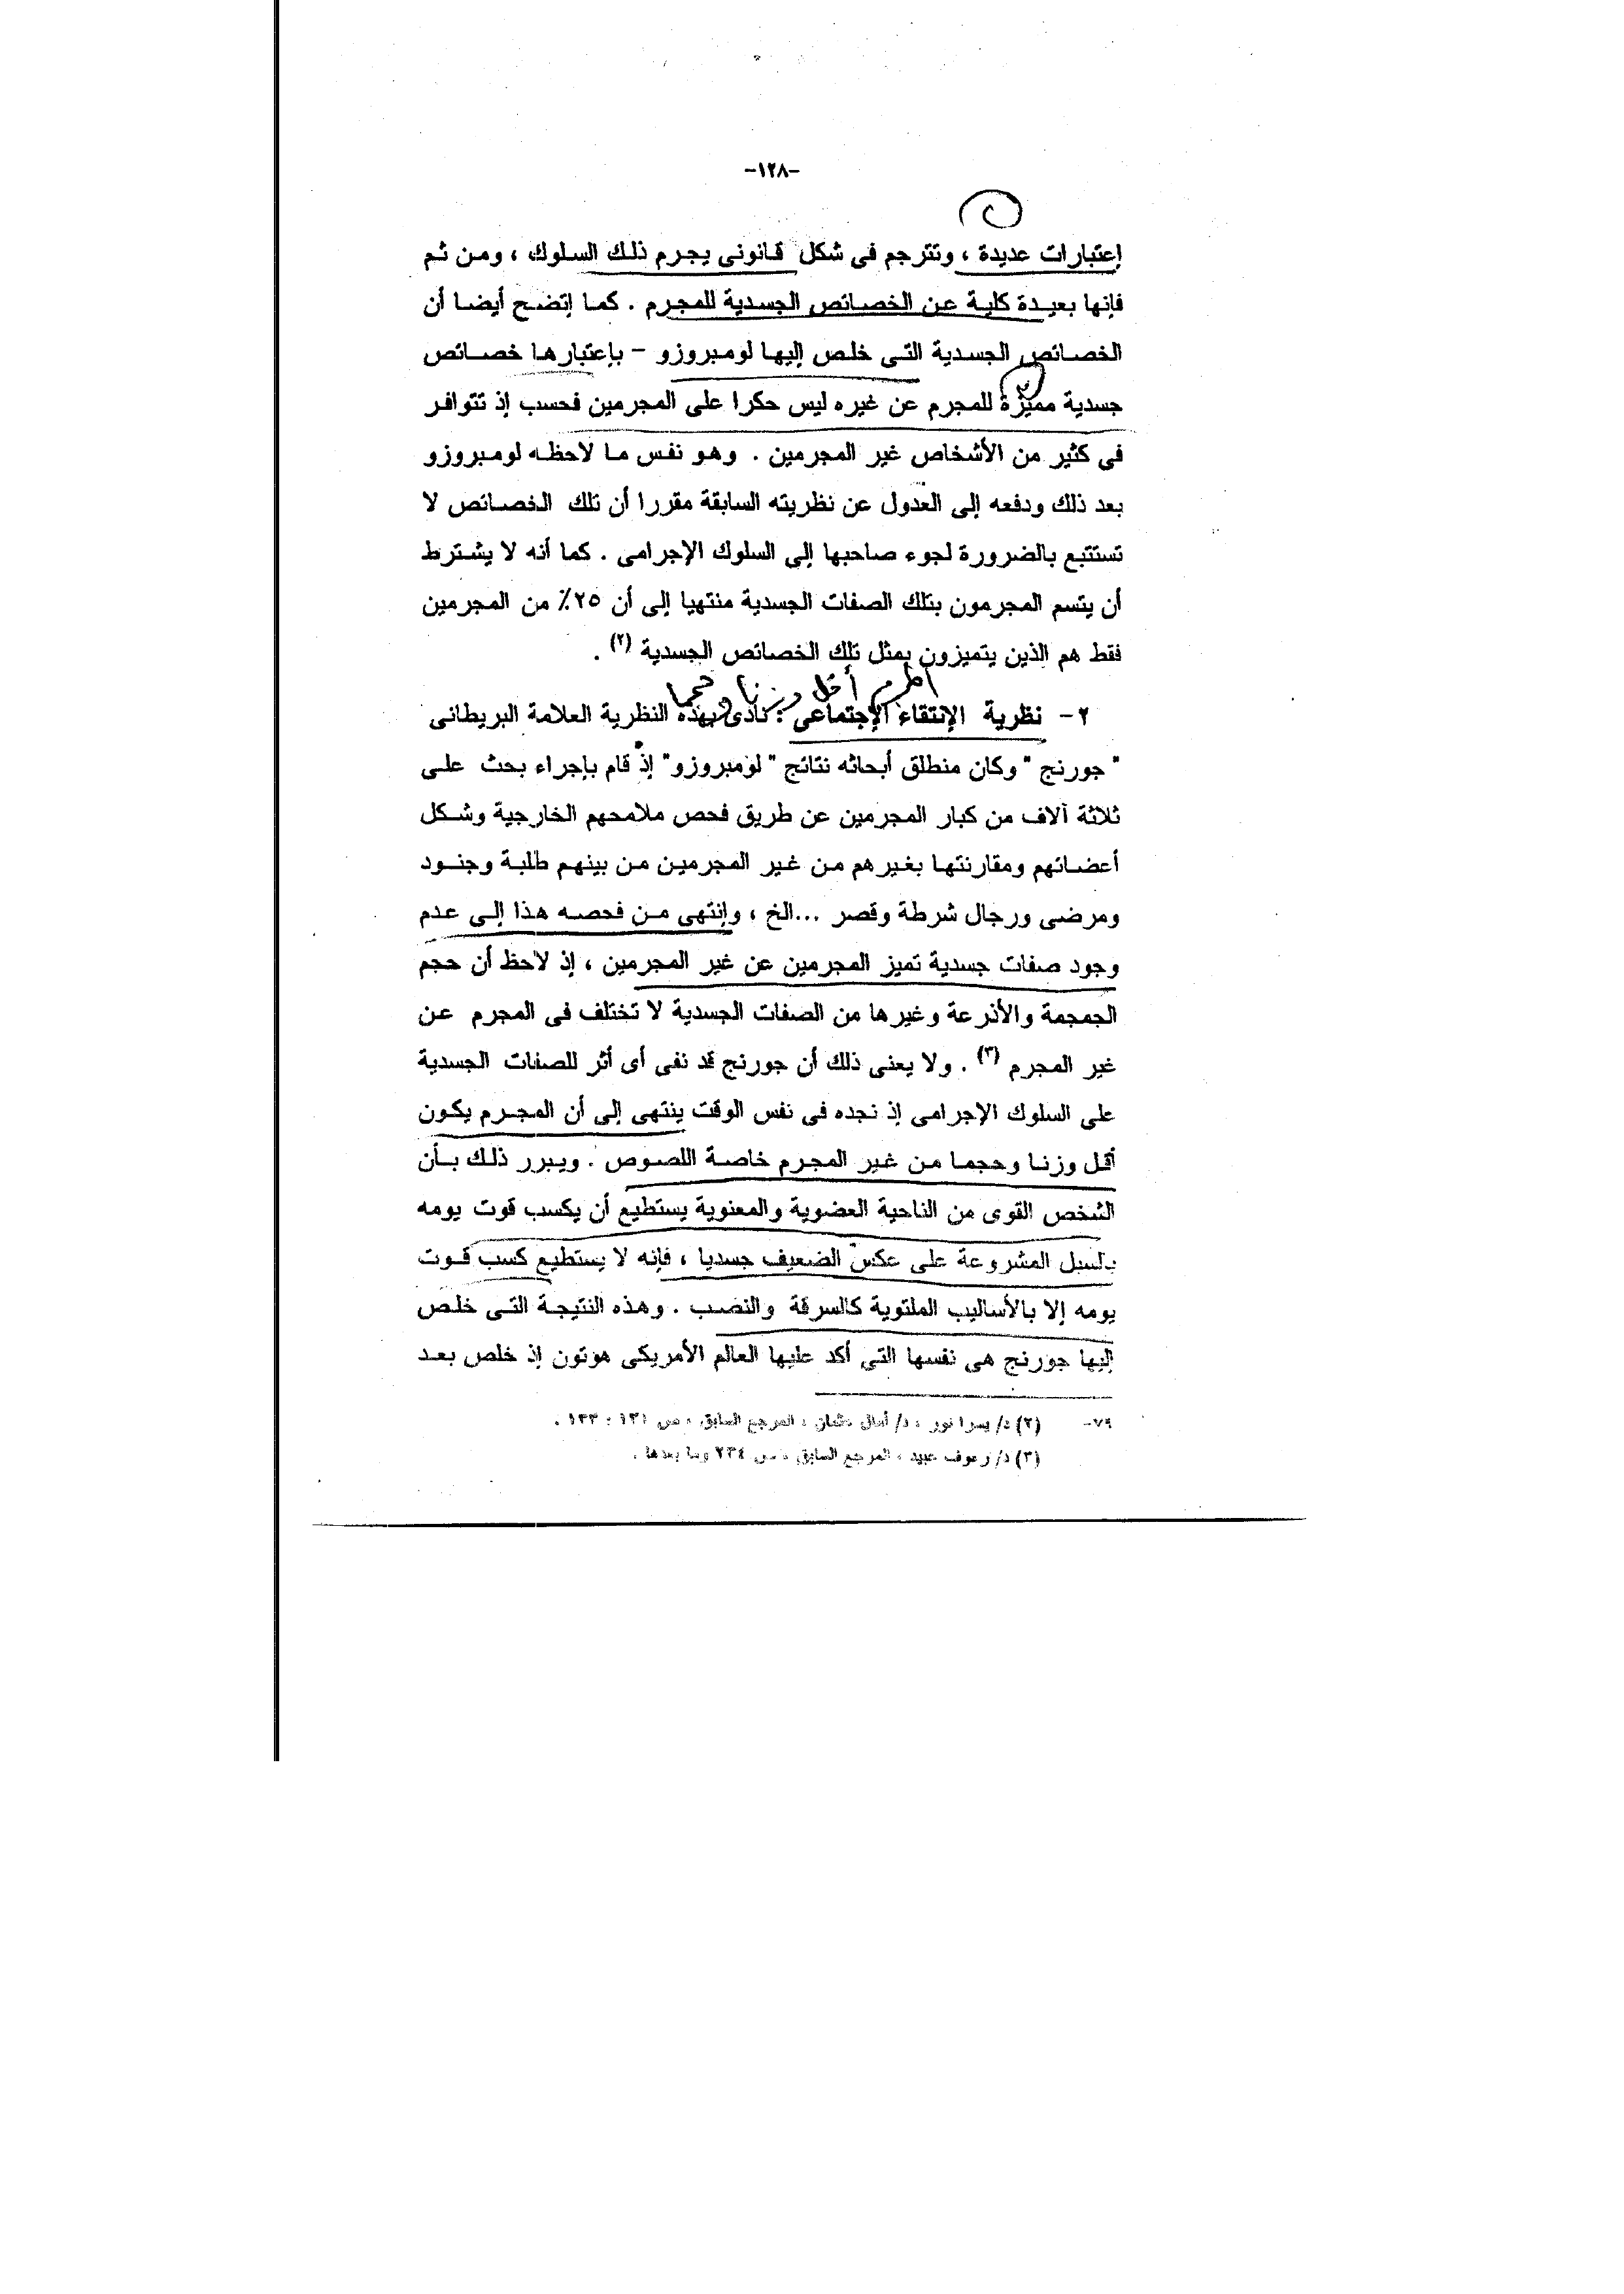 -١٢٨-
إعتبارات عديدة ، وتترجم فى شكل قانونى يجرم ذلك السلوك ، ومن ثم
فإنها بعيدة كلية عن الخصائص الجسدية للمجرم . كما إتضح أيضا أن
الخصائص الجسدية التى خلص إليها لومبروزو – بإعتبارها خصائص
جسدية مميزة للمجرم عن غيره ليس حكرا على المجرمين فحسب إذ تتوافر
فى كثير من الأشخاص غير المجرمين . وهو نفس ما لاحظه لومبروزو
بعد ذلك ودفعه إلى العدول عن نظريته السابقة مقررا أن تلك الخصائص لا
تستتبع بالضرورة لجوء صاحبها إلى السلوك الإجرامى . كما أنه لا يشترط
أن يتسم المجرمون بتلك الصفات الجسدية منتهيا إلى أن ٢٥٪ من المجرمين
فقط هم الذين يتميزون بمثل تلك الخصائص الجسدية (٢) .
أقل وزنا وحجما
٢- نظرية الإنتقاء الإجتماعى : نادى بهذه النظرية العلامة البريطانى
" جورنج " وكان منطلق أبحاثه نتائج " لومبروزو" إذ قام بإجراء بحث على
ثلاثة آلاف من كبار المجرمين عن طريق فحص ملامحهم الخارجية وشكل
أعضائهم ومقارنتها بغيرهم من غير المجرمين من بينهم طلبة وجنود
ومرضى ورجال شرطة وقصر ...الخ ، وإنتهى من فحصه هذا إلى عدم
وجود صفات جسدية تميز المجرمين عن غير المجرمين ، إذ لاحظ أن حجم
الجمجمة والأذرعة وغيرها من الصفات الجسدية لا تختلف فى المجرم عن
غير المجرم (٣) . ولا يعنى ذلك أن جورنج قد نفى أى أثر للصفات الجسدية
على السلوك الإجرامى إذ نجده فى نفس الوقت ينتهى إلى أن المجرم يكون
أقل وزنا وحجما من غير المجرم خاصة اللصوص . ويبرر ذلك بأن
الشخص القوى من الناحية العضوية والمعنوية يستطيع أن يكسب قوت يومه
بالسبل المشروعة على عكس الضعيف جسديا ، فإنه لا يستطيع كسب قوت
يومه إلا بالأساليب الملتوية كالسرقة والنصب . وهذه النتيجة التى خلص
إليها جورنج هى نفسها التى أكد عليها العالم الأمريكى هوتون إذ خلص بعد
٧٩- (٢) د/ يسرا نور ، د/ أمال عثمان ، المرجع السابق ، ص ١٣١ : ١٣٣ .
(٣) د/ رءوف عبيد ، المرجع السابق ، ص ٢٣٤ وما بعدها .